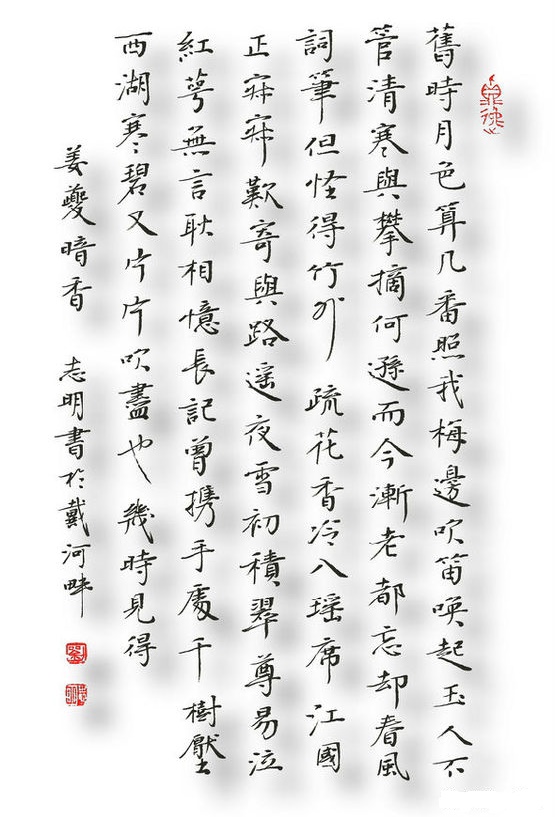 舊時月色算几番照我梅邊吹笛喚起玉人不
管清寒與攀摘何遜而今漸老都忘却春風
詞筆但怪得竹外疏花香冷入瑶席江國
正寂寂歎寄與路遥夜雪初積翠尊易泣
紅萼無言耿相憶長記曾携手處千樹壓
西湖寒碧又片片吹盡也幾時見得
姜夔暗香 志明書於戴河畔